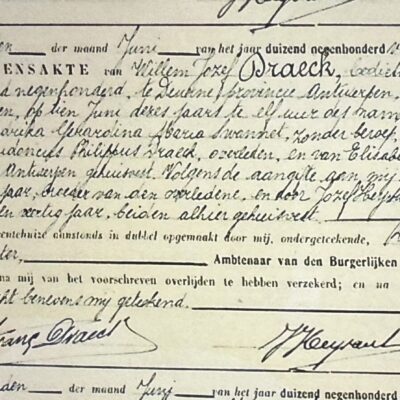 der maand Juni van het jaar duizend negenhonderd
ENSAKTE van Willem Jozef Draeck, bediend
negenhonderd, te Deurne provincie Antwerpen,
op tien Juni dezes jaars te elf uur des nam
Gerardina Maria Swannet, zonder beroep,
Philippus Draeck, overleden, en van Elisabe
Antwerpen gehuisvest. Volgens de aangifte aan mij
jaar, broeder van den overledene, en door Jozef Heyra
en veertig jaar, beiden alhier gehuisvest.
eentehuize aanstonds in dubbel opgemaakt door mij, ondergeteekende,
ter, Ambtenaar van den Burgerlijken
na mij van het voorschreven overlijden te hebben verzekerd; en na
cht benevens mij geteekend.
Frans Draeck J Heyraut
den der maand Junij van het jaar duizend negenhonderd